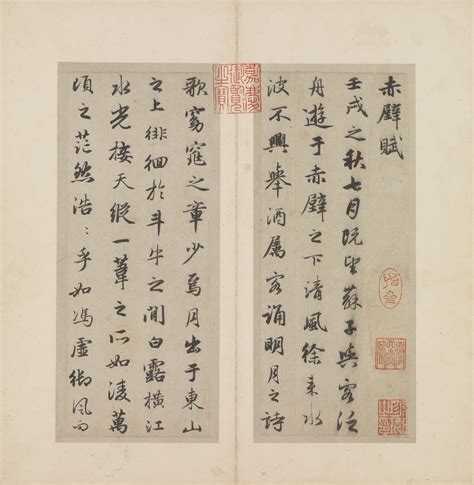 赤壁賦
壬戌之秋七月既望蘇子與客泛
舟遊于赤壁之下清風徐来水
波不興舉酒属客誦明月之詩
嘉慶御覽之寶
歌窈窕之章少焉月出于東山
之上徘徊於斗牛之間白露横江
水光接天縱一葦之所如淩萬
頃之茫然浩〻乎如馮虚御風而